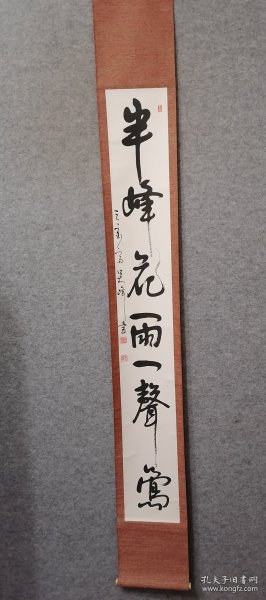 半峰花雨一聲鶯
孔夫子旧书网
www.kongfz.com